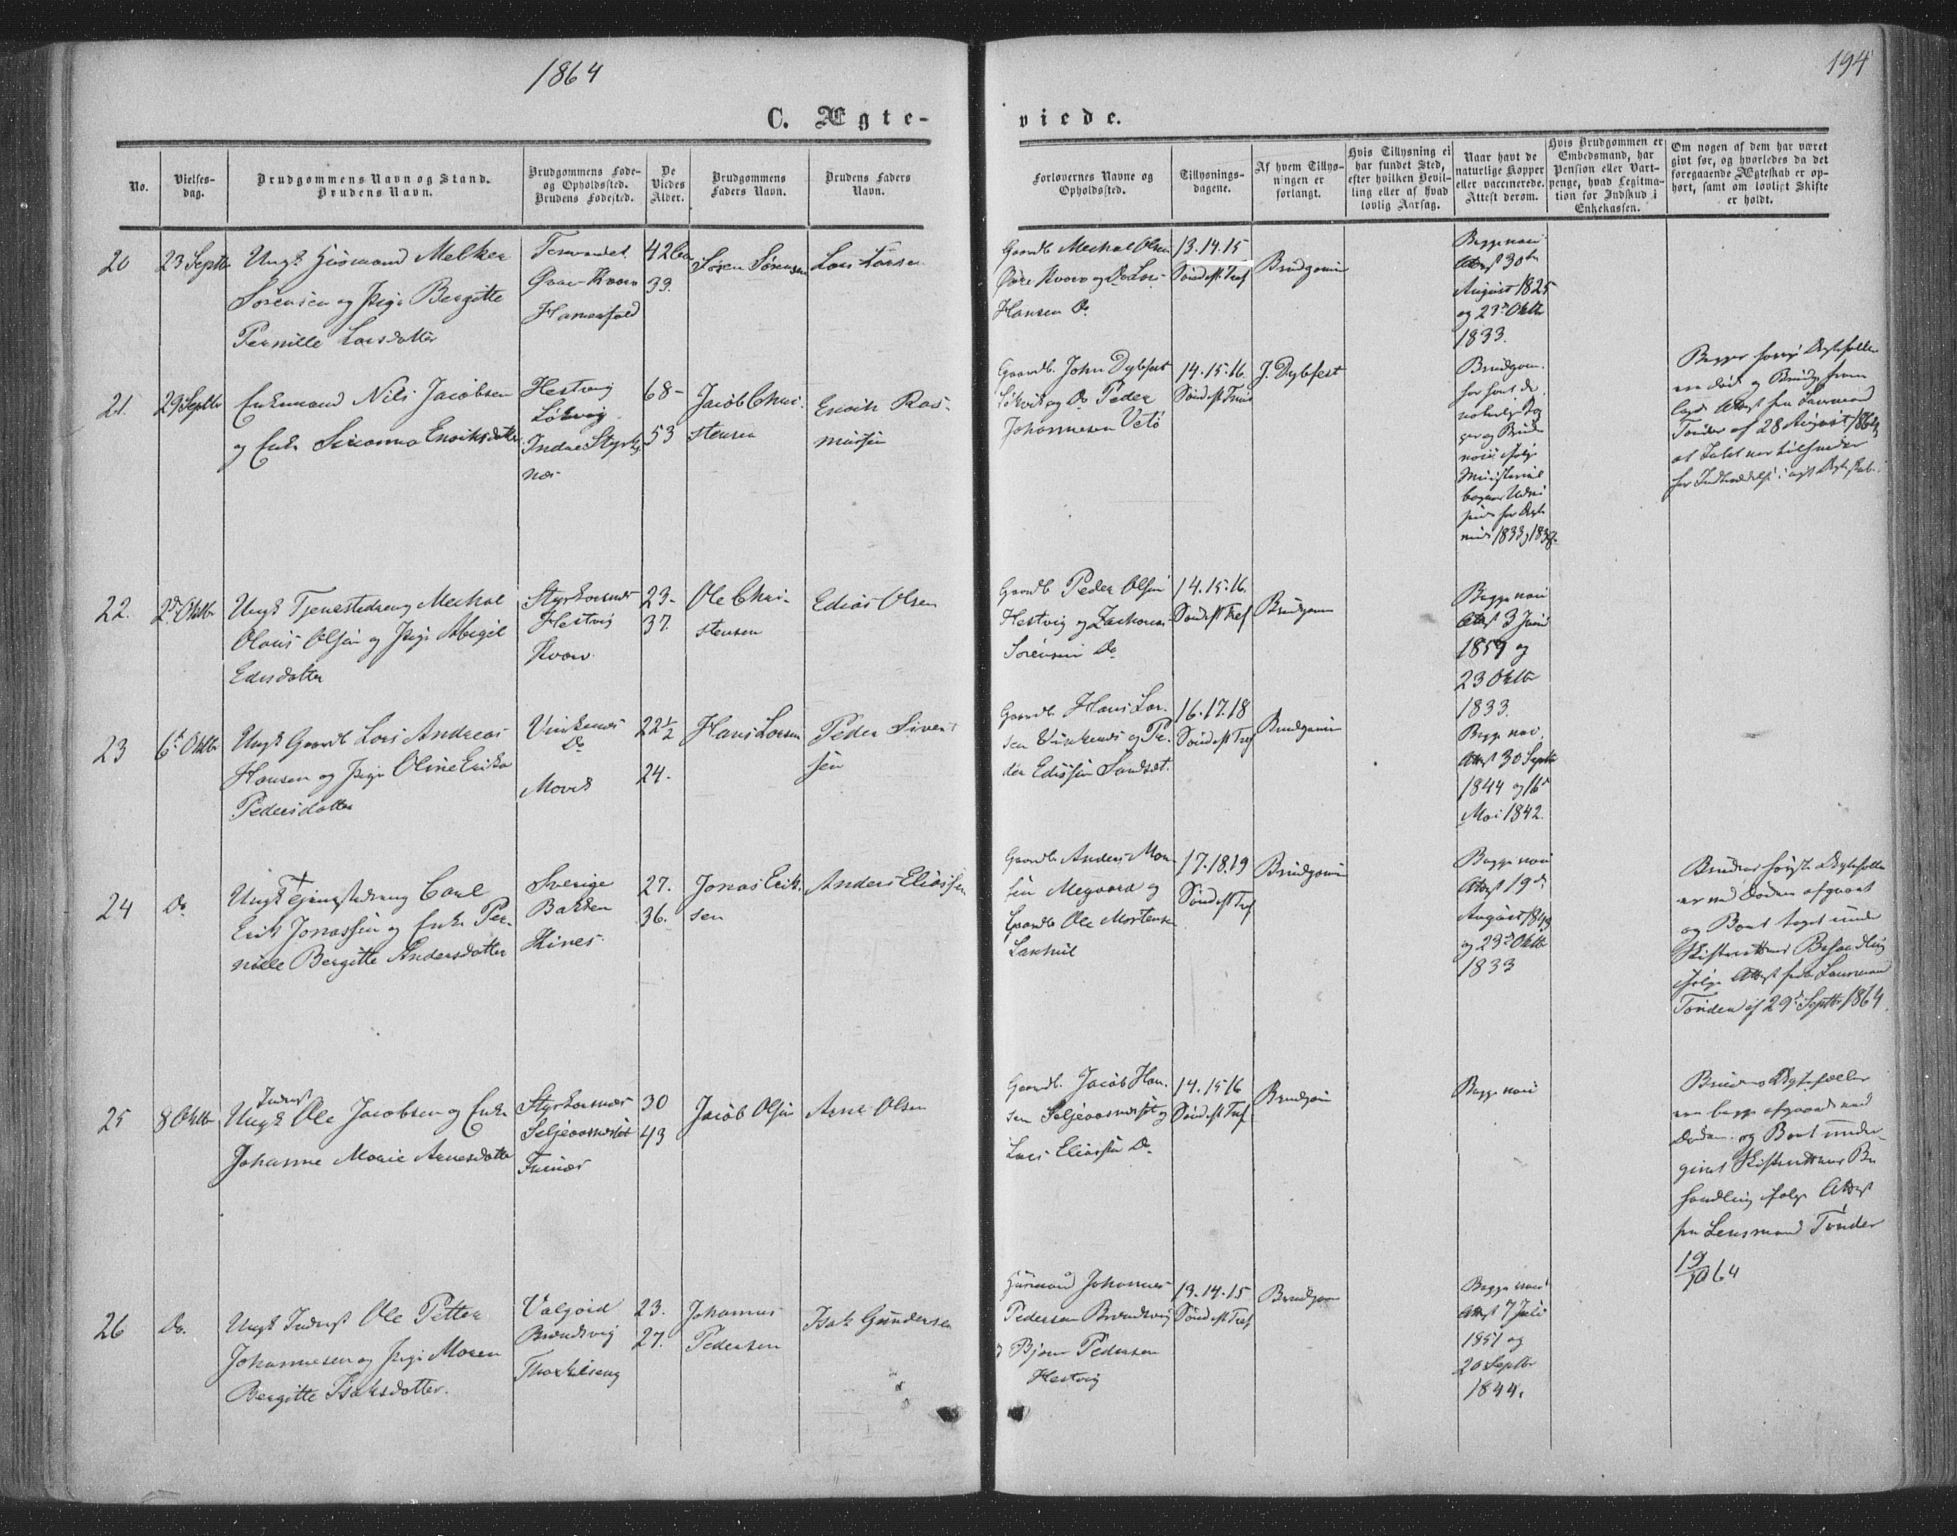 1864
194
C. Ægte-
viede.
No.
Vielses-
dag.
Brudgommens Navn og Stand.
Brudens Navn.
Brudgommens Føde-
og Opholdssted.
Brudens Fødested.
De
Viedes
Alder.
Brudgommens
Faders Navn.
Brudens Faders
Navn.
Forlovernes Navne og
Opholdssted.
Tillysnings-
dagene.
Af hvem Tillys-
ningen er
forlangt.
Hvis Tillysning ei
har fundet Sted,
efter hvilken Bevil-
ling eller af hvad
lovlig Aarsag.
Naar havt de
naturlige Kopper
eller vaccinerede.
Attest derom.
Hvis Brudgommen er
Embedsmand, har
Pension eller Vart-
penge, hvad Legitima-
tion for Indskud i
Enkekassen.
Om nogen af dem har været
givt før, og hvorledes da det
foregaaende Ægteskab er op-
hørt, samt om lovligt Skifte
er holdt.
20
23 Septbr
Ungk Huusmand Melker
Sørensen og Pige Bergitte
Pernille Larsdatter
Kvarv
42
39.
Søren Sørensen
Lars Larsen
Gaardb. Mechal Olsen
Øvre Kvarv og Do Lars
Hansen Do
13.14.15
Sønd efter Tref
Brudgommen
Begge vacc
Attest 30te
August 1825
og 23de Oktbr
1833.
21.
29 Septbr
Enkemand Nils Jacobsen
og Enke Enoiksdatter
Hestvig
Løkvig
Indre Styrkes
nær
68-
53
Jacob Chri-
stensen
Enoik Ras-
mussen
Gaardb. John Dybfest
Løkvig og Do Peder
Johannesen Vetø
14.15.16.
Sønd efter Trin
J. Dybfest
Brudgom.
har havt de
naturlige Kop
per og Bruden
vacc ifølge
Ministerial
bogens Udvi
sende for Aar
1833 og 1838.
Begges forrige Ægtefæller
ere døde og Bruden frem
lagde Attest fra Lensmand
Tønder af 28 August 1864
at Intet var til Hinder
for Indtrædelse i nyt Ægteskab.
22.
2de Oktbr
Ungk Tjenestedreng Mechal
Olaus Olsen og Pige Abigel
Edisdatter
Styrkesnæs
Hestvig
Kvarv
23-
37.
Ole Chri-
stensen
Edias Olsen
Gaardb Peder Olsen
Hestvig og Zacharias
Sørensen Do
14.15.16.
Sønd efter Tref
Brudgommen
Begge vacc
Attest 3 Juni
1859 og
23 Oktbr
1833.
23
6te Oktbr
Ungk Gaardb Lars Andreas
Hansen og Pige Oline Erika
Pedersdatter
Vinkenæs
Do
22½
24.
Hans Larsen
Peder Sivert
sen
Gaardb. Hans Lar-
sen Vinkenæs og Pe-
der Edissen Sandset.
16.17.18
Sønd efter Tref
Brudgommen
Begge vacc.
Attest 30 Septbr
1844 og 16de
Mai 1842.
24
Do
Ungk Tjenestedreng Carl
Erik Jonassen og Enke Per-
nille Bergitte Andersdatter
Sverige
Bakken
Hines
27.
36.
Jonas Erik-
sen
Anders Eliassen
Gaardb Anders Mor
ten Megaard og
Gaardb Ole Mortensen
Laxhul
17.18.19
Sønd efter Tref
Brudgommen
Begge vacc
Attest 19de
August 1849
og 23de Oktbr
1833
Brudens første Ægtefælle
er ved Døden afgaaet
og Boet taget under
Skifterettens Behandling
ifølge Attest fra Lensmand
Tønder af 29de Septbr 1864.
25
8 Oktbr
Inderst
Ungk Ole Jacobsen og Enke
Johanne Marie Arnesdatter
Styrkesnæs
Seljeaasnæset
30
43
Jacob Olsen
Arne Olsen
Gaardb. Jacob Han-
sen Seljeaasnæset og
Lars Eliassen Do
14.15.16
Sønd efter Tref
Brudgommen
Begge vacc
Brudens Ægtefæller
ere begge afgaaede ved
Døden og Boet under-
givet Skifterettens Be
handling ifølge Attest
fra Lensmand Tønder
19/9 64
26
Do.
Ungk Inderst Ole Petter
Johannesen og Pige Maren
Bergitte Isaksdatter.
Valgard
Brændsvig
Thorkelseng
23.
27.
Johannes
Pedersen
Isak Gundersen
Huusmand Johannes
Pedersen Brændsvig
og Bjørn Pedersen
Hestvig
13.14.15
Sønd efter Tref
Brudgommen
Begge vacc
Attest 7 Juli
1851 og
20 Septbr
1844.